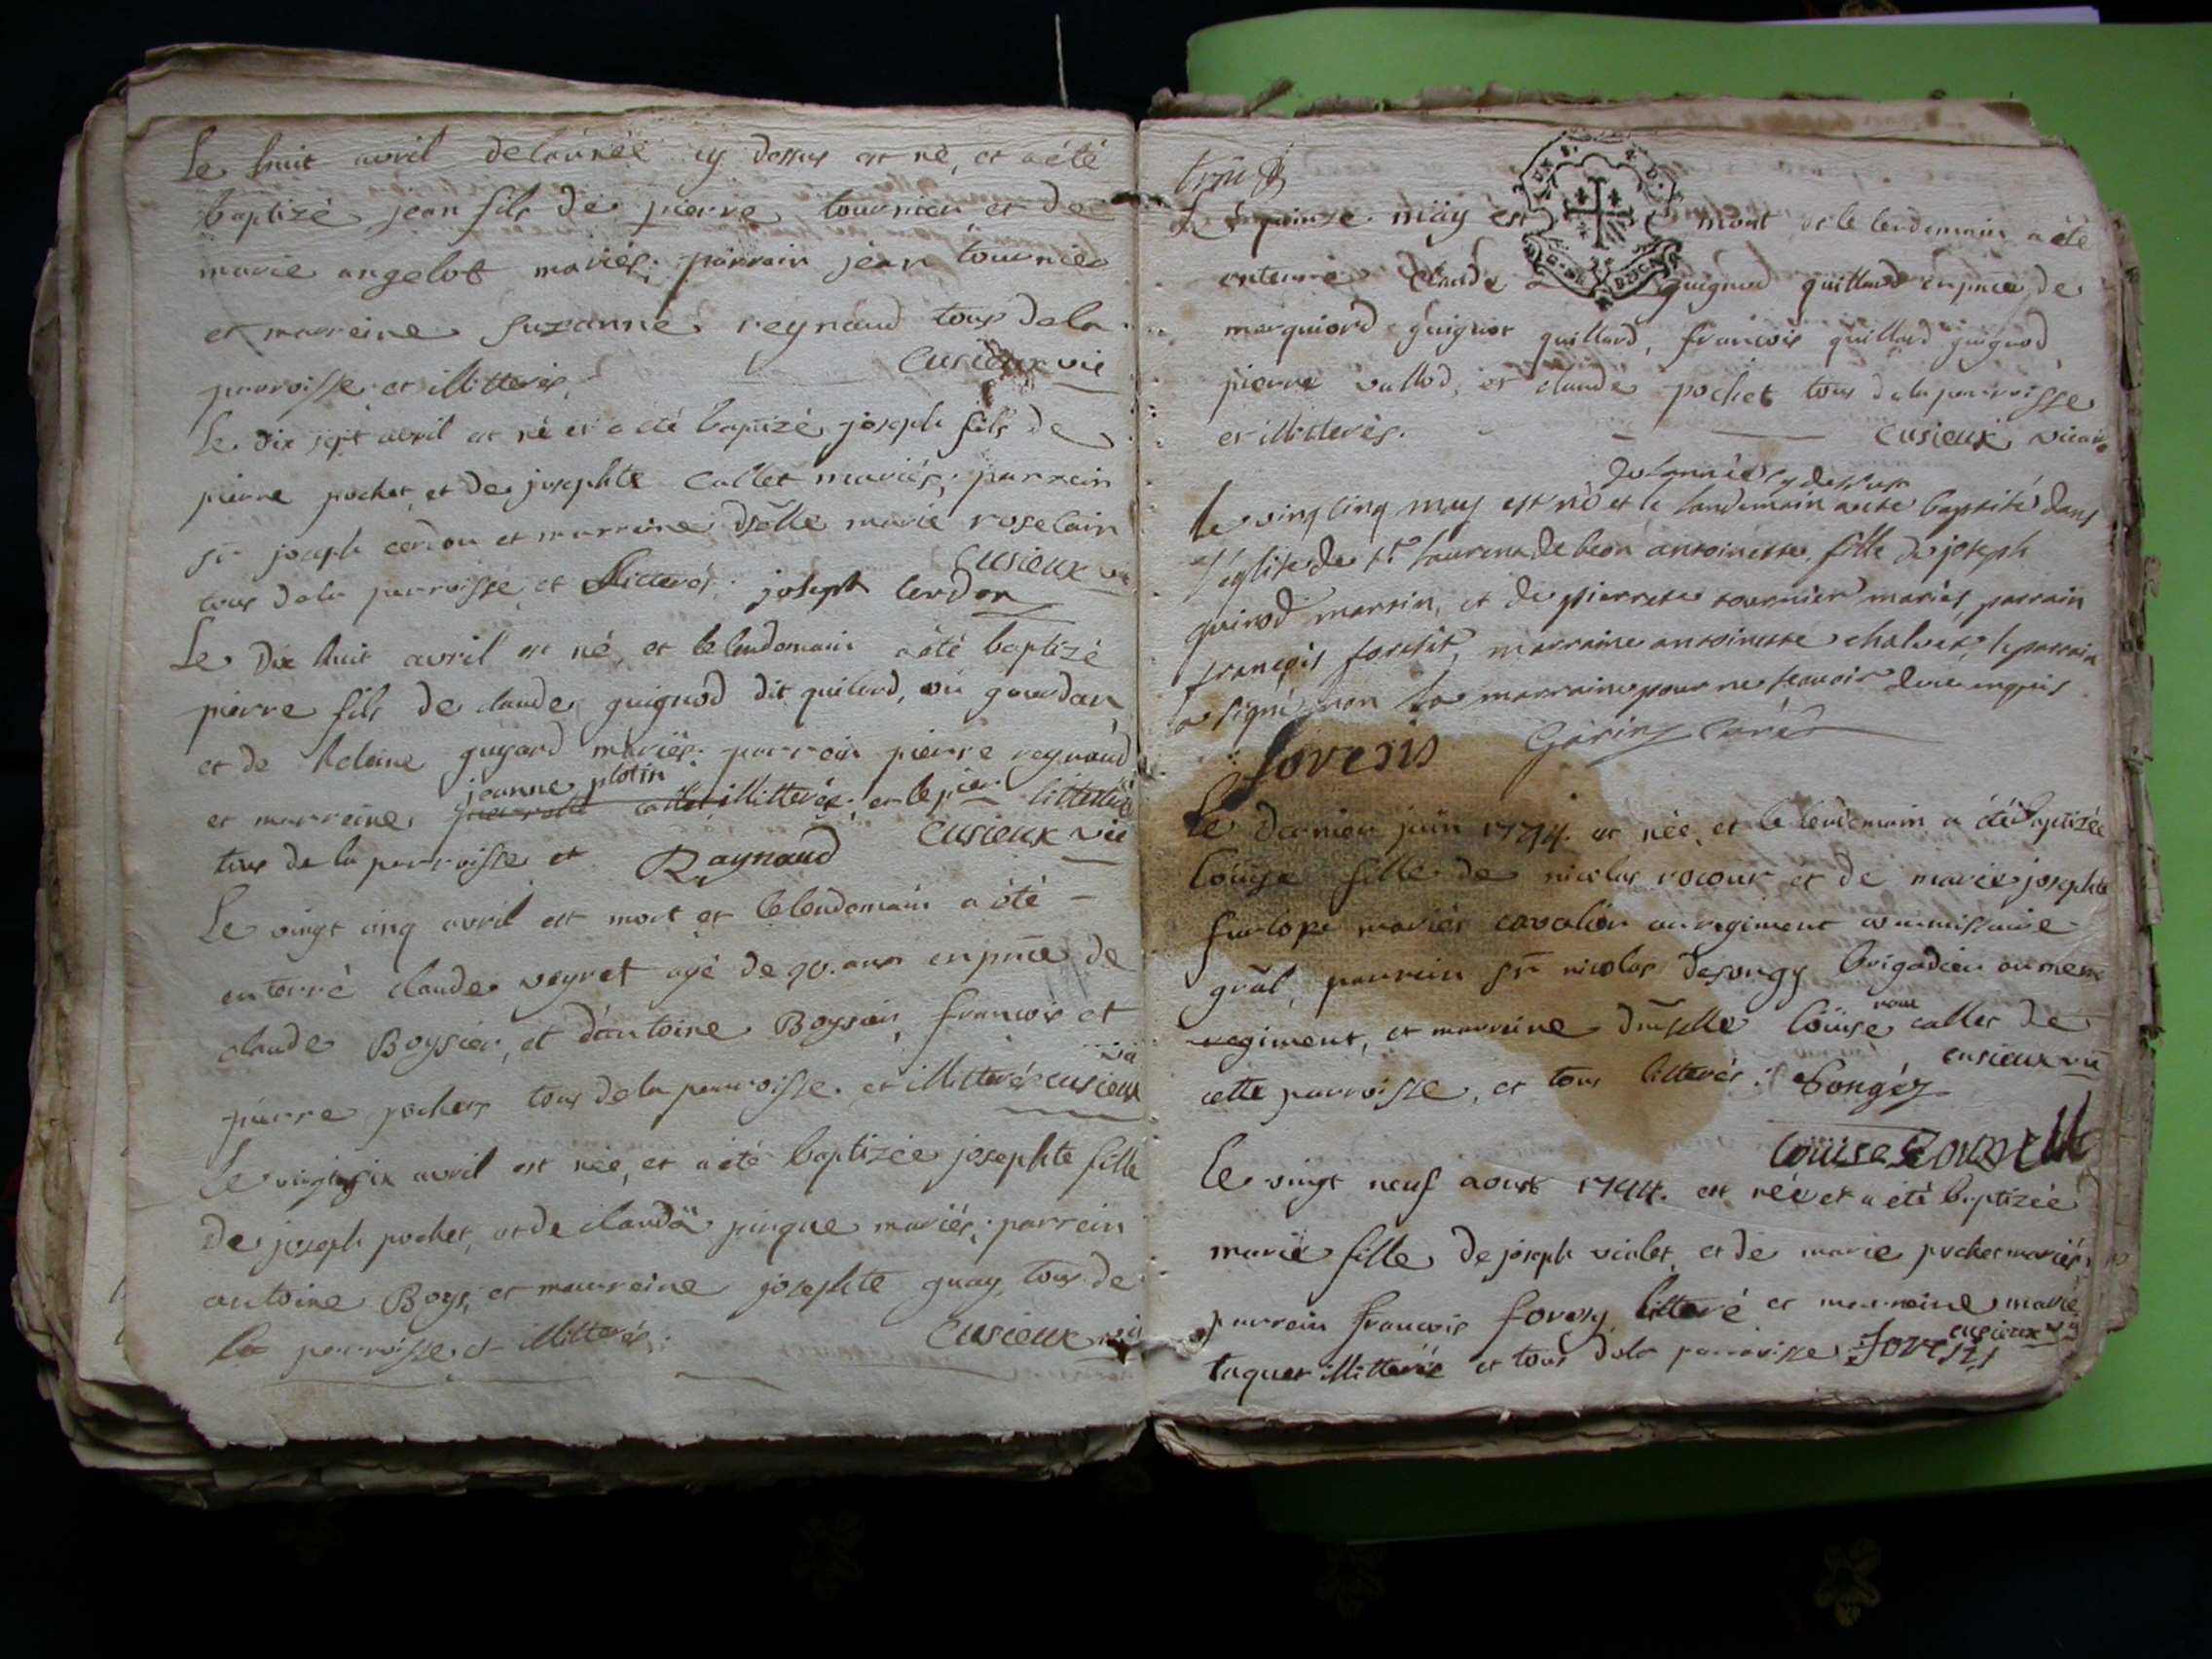 Le huit avril delannée cy dessus est né, et a été
baptizé jean fils de pierre tournier et de
marie angelot mariés; parrain jean tournier
et marreine suzanne reynaud tous dela
parroisse et illitterés. Cusieux vic
Le dix sept avril est né et a été baptizé joseph fils de
pierre pochet et de josephte Callet mariés; parrein
sr joseph cerdon et marreine dselle marie roselain
tous dela parroisse et Litterés. joseph Cerdon Cusieux vic
Le dix huit avril est né, et le lendemain a été baptizé
pierre fils de claude guignod dit guilard, ou gourdan,
et de helaine guyard mariés: parrein pierre reynaud
et marreine jeanne plotin illitterée, et le litterée
tous de la parroisse et Raynaud Cusieux vic
Le vingt cinq avril est mort et le lendemain a été -
enterré claude veyret agé de 90. ans en pnce de
claude Boysier, et d'antoine Boysier, francois et
pierre pochets tous de la parroisse. et illitterés cusieux vic
Le vingt six avril est née, et a été baptizée josephte fille
de joseph pochet, et de claudä pingue mariés; parrein
antoine Boys, et marreine josephte guay tous de
la parroisse et illitterés. Cusieux vic
Le quinze mäy est mort et le lendemain a été
enterré Claude guignod guillard en pnce de
marquiord guignot guillard, francois guillard guignod,
pierre vallod, et claude pochet tous dela parroisse
et illitterés. Cusieux vicaire
delannée cy dessus
le vingt cinq may est né et le landemain a ete baptisé dans
l'eglise de st laurent de beon antoinette fille de joseph
guinod martin, et de pierrete tournier mariés, parrain
françois foresit, marraine antoinette chalvet, le parrain
a signé non la marraine pour ne scavoir de ce enquis
foresis Gorin Curé
Le dernier juin 1774. est née, et le lendemain a été baptizée
loüise fille de nicolas rocour et de marie josephte
furlope mariés cavalier au regiment commissaire -
gräl, parrein sr nicolas desongy brigadier au meme
regiment, et marreine dmselle loüise callet de
cette parroisse, et tous litterés. Songéz cusieux vic
loüise
Le vingt neuf aoust 1774. est née et a été baptizée
marie fille de joseph violet, et de marie pochet mariés,
parrein francois foresy litteré et marreine marie
taquet illitterée et tous dela parroisse foresis cusieux vic